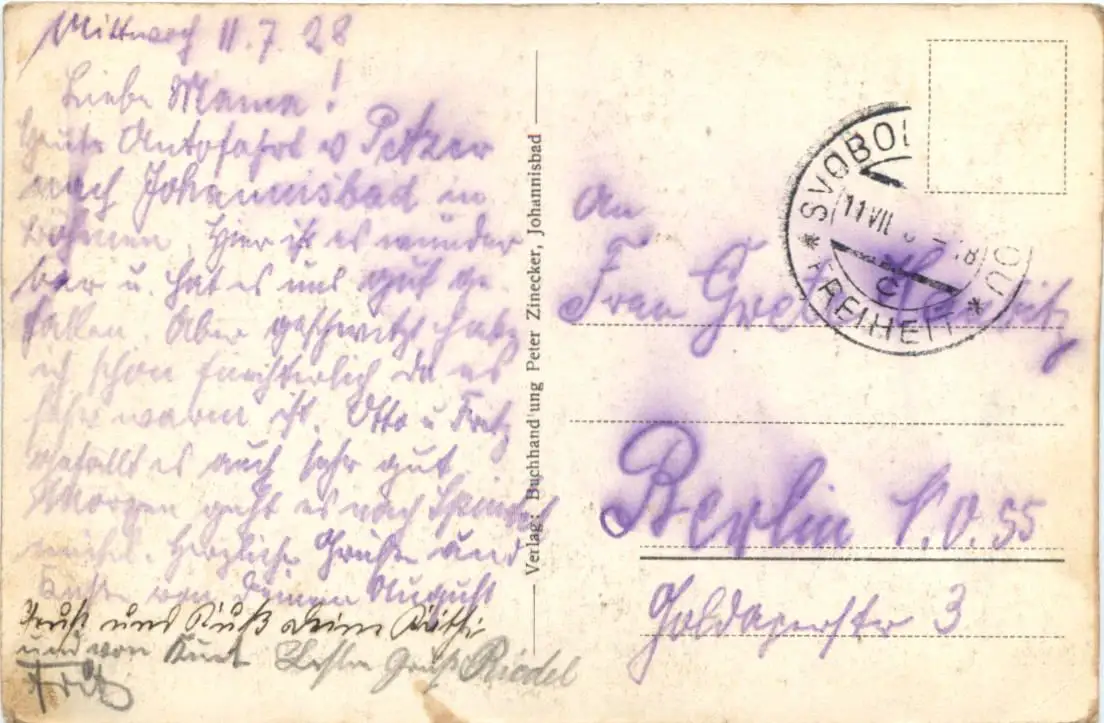 Mittwoch 11.7.28
Liebe Mama!
Heute Autofahrt v Petzer
nach Johannisbad in
Böhmen. Hier ist es wunder
bar u. hat es uns gut ge-
fallen. Aber geschwitzt habe
ich schon fürchterlich da es
sehr warm ist. Otto u Fritz
gefällt es auch sehr gut.
Morgen geht es nach Spindel
mühl. Herzliche Grüße und
Küsse von Deinem August
Gruß und Kuß deine Käthi
und von Kurt Besten Gruß Riedel
Fritz
Verlag: Buchhandlung Peter Zinecker, Johannisbad
SVOBOD OU
11 VII 18
C
* FREIHEIT *
An
Frau
Berlin N.O. 55
3